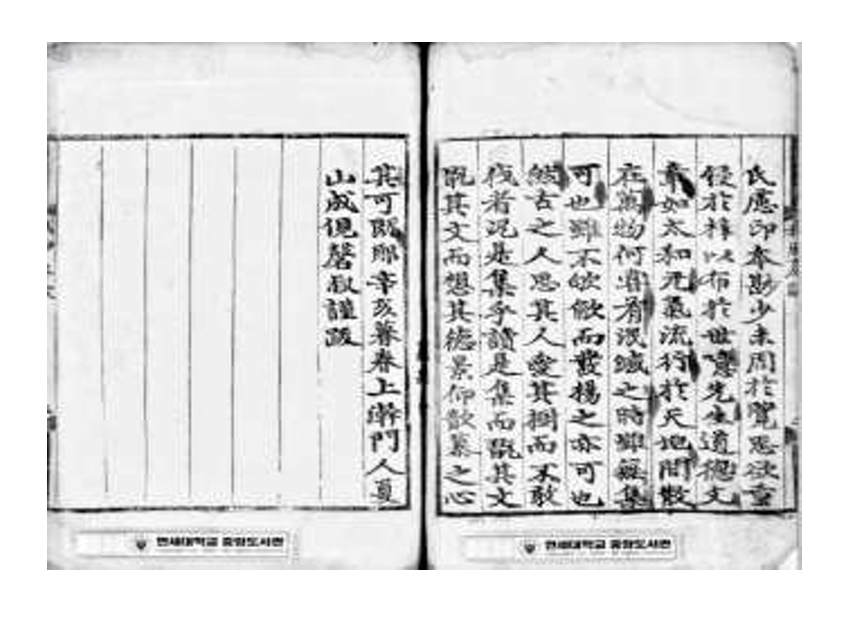 氏應印夲尠少未周於覽思欲重
鋟於梓以布於世噫先生道德文
章如太和元氣流行於天地間散
在萬物何嘗有泯滅之時雖無集
可也雖不欲而發揚之亦可也
然古之人思其人愛其樹而不敢
伐者况是集乎讀是集而翫其文
翫其文而想其德景仰歆慕之心
其可旣耶辛亥暮春上澣門人夏
山成俔磬叔謹跋
연세대학교 중앙도서관
연세대학교 중앙도서관